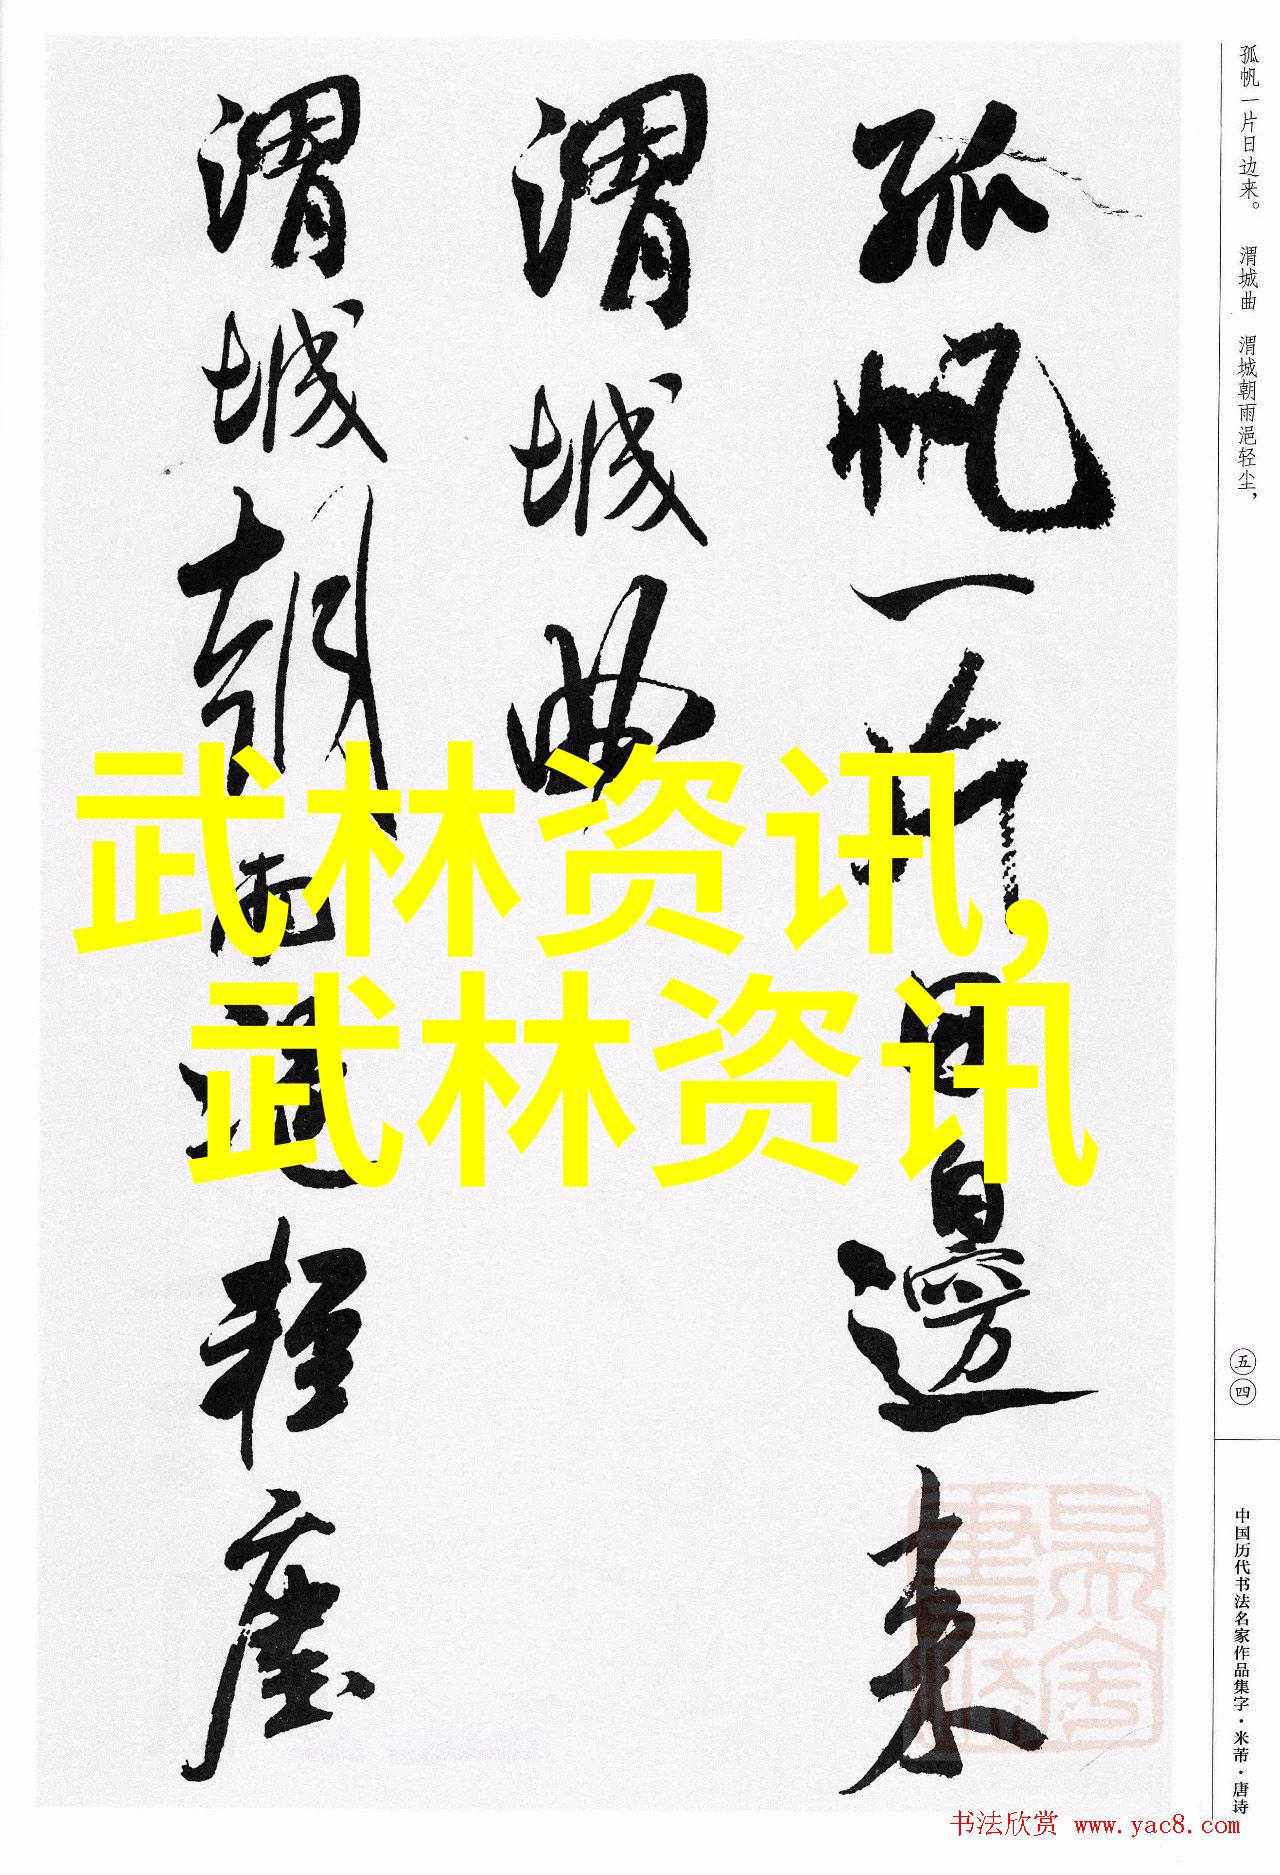 孤帆一片日边来。 渭城曲 渭城朝雨浥轻尘，
孤帆一片日邊来
渭城曲
渭城朝雨浥轻塵
武林资讯,
武林资讯
五四
中国历代书法名家作品集字·米芾·唐诗
书法欣赏 www.yac8.com